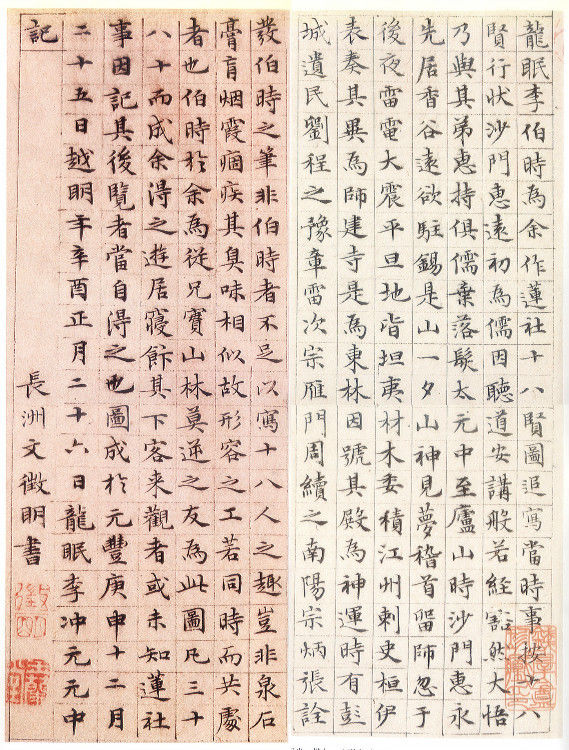 龍眠李伯時為余作蓮社十八賢圖追寫當時事按十八
賢行狀沙門惠遠初為儒因聽道安講般若經豁然大悟
乃與其弟惠持俱儒棄落髮太元中至廬山時沙門惠永
先居香谷遠欲駐錫是山一夕山神見夢稽首留師忽于
後夜雷電大震平旦地皆坦夷材木委積江州刺史桓伊
表奏其畢為師建寺是為東林因號其殿為神運時有彭
城遺民劉程之豫章雷次宗雁門周續之南陽宗炳張詮
發伯時之筆非伯時者不足以寫十八人之趣豈非泉石
膏肓烟霞痼疾其臭味相似故形容之工若同時而共處
者也伯時於余為從兄實山林莫逆之友為此圖凡三十
八十而成余得之遊居寢飰其下客來觀者或未知蓮社
事因記其後覽者當自得之也圖成於元豐庚申十二月
二十五日越明年辛酉正月二十六日龍眠李冲元元中
記
長洲文徵明書
徵明